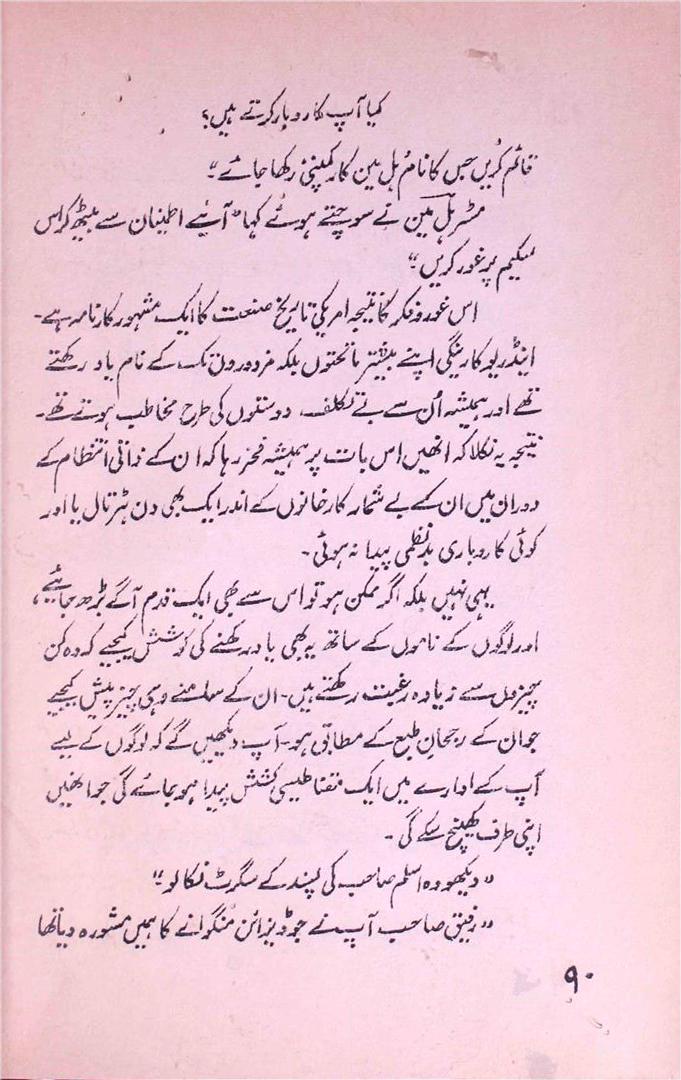 کیا آپ کاروبار کرتے ہیں؟
قائم کریں جس کا نام پُل مین کار کمپنی رکھا جائے۔"
مسٹر پل مین نے سوچتے ہوئے کہا "آیئے اطمینان سے بیٹھ کر اس
سکیم پر غور کریں۔"
اس غور و فکر کا نتیجہ امریکی تاریخ صنعت کا ایک مشہور کارنامہ ہے۔
اینڈریو کارنیگی اپنے بیشتر ماتحتوں بلکہ مزدورون تک کے نام یاد رکھتے
تھے اور ہمیشہ اُن سے بے تکلف، دوستوں کی طرح مخاطب ہوتے تھے۔
نتیجہ یہ نکلا کہ انھیں اس بات پر ہمیشہ فخر رہا کہ ان کے ذاتی انتظام کے
دوران میں ان کے بے شمار کارخانوں کے اندر ایک بھی دن ہڑتال یا اور
کوئی کاروباری بدنظمی پیدا نہ ہوئی۔
یہی نہیں بلکہ اگر ممکن ہو تو اس سے بھی ایک قدم آگے بڑھ جایئے،
اور لوگوں کے ناموں کے ساتھ یہ بھی یاد رکھنے کی کوشش کیجیے کہ وہ کن
چیزوں سے زیادہ رغبت رکھتے ہیں۔ ان کے سامنے وہی چیز پیش کیجیے
جو ان کے رجحانِ طبع کے مطابق ہو۔ آپ دیکھیں گے کہ لوگوں کے لیے
آپ کے ادارے میں ایک مقناطیسی کشش پیدا ہو جائے گی جو انھیں
اپنی طرف کھینچ سکے گی۔
"دیکھو وہ اسلم صاحب کی پسند کے سگرٹ نکالو۔"
"رفیق صاحب آپ نے جو ڈیزائن منگوانے کا ہمیں مشورہ دیا تھا
۹۰